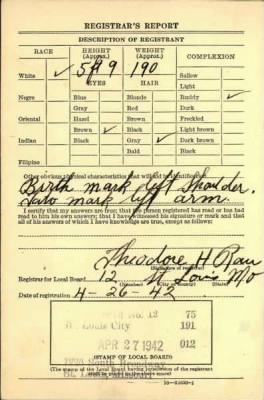 REGISTRAR'S REPORT
DESCRIPTION OF REGISTRANT
RACE HEIGHT (Approx.) WEIGHT (Approx.) COMPLEXION
White ✓ 5ft 9 190 Sallow
EYES HAIR Light
Negro Blue Blonde Ruddy ✓
Gray Red Dark
Oriental Hazel Brown Freckled
Brown ✓ Black Light brown
Indian Black Gray ✓ Dark brown
Bald Black
Filipino
Other obvious physical characteristics that will aid in identification
Birth mark left Shoulder.
mark left arm.
I certify that my answers are true; that the person registered has read or has had
read to him his own answers; that I have witnessed his signature or mark and that
all of his answers of which I have knowledge are true, except as follows:
Theodore H
Registrar for Local Board 12 St Louis Mo
Date of registration 4-26-42
No. 12 75
St. Louis City 191
APR 27 1942 012
South Broadway
St. Louis, Missouri
(STAMP OF LOCAL BOARD)
(The stamp of the Local Board having jurisdiction of the registrant
shall be placed in the above space)